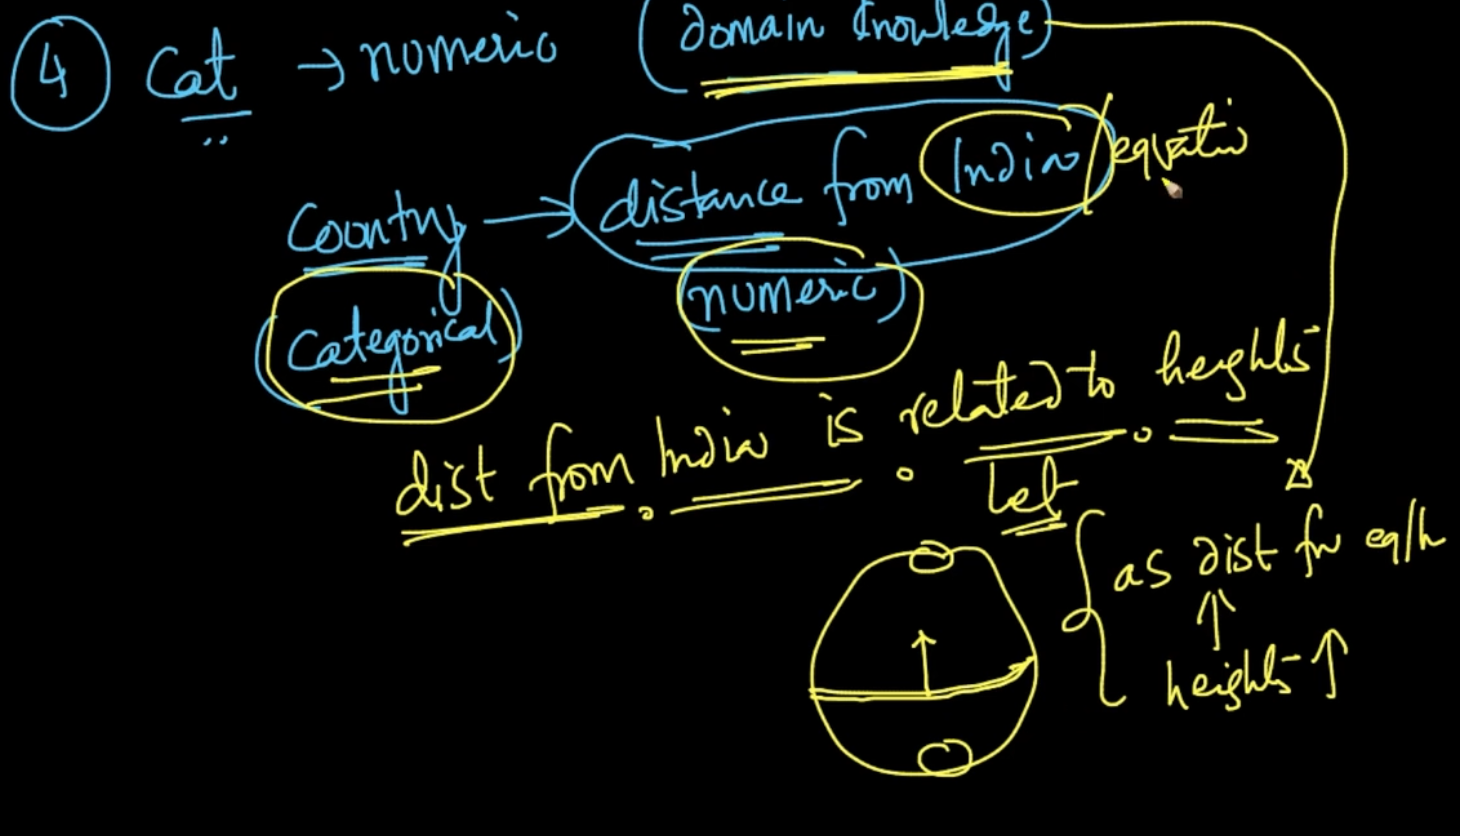 ④ Cat → numeric (domain knowledge)
Country → distance from India / equatio
(categorical) (numeric)
dist from India is related to heights
Let
as dist fr eq/h
↑
heights ↑